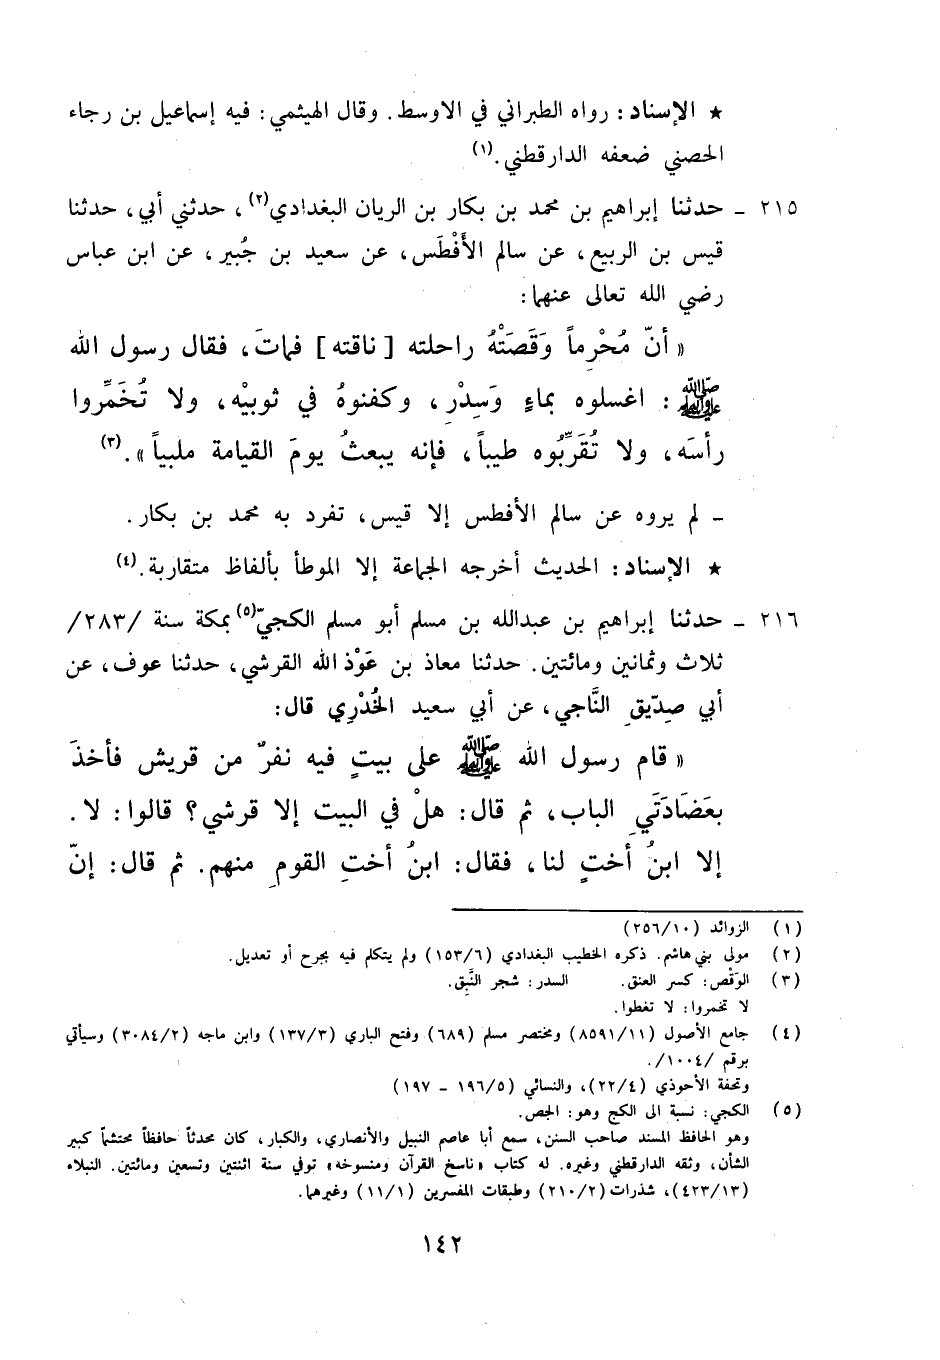 ★ الإسناد: رواه الطبراني في الاوسط. وقال الهيثمي: فيه إسماعيل بن رجاء
الحصني ضعفه الدارقطني.(١)
٢١٥ ـ حدثنا إبراهيم بن محمد بن بكار بن الريان البغدادي(٢)، حدثني أبي، حدثنا
قيس بن الربيع، عن سالم الأَفْطَس، عن سعيد بن جُبير، عن ابن عباس
رضي الله تعالى عنهما:
« أنّ مُحْرِماً وَقَصَتْهُ راحلته [ناقته] فماتَ، فقال رسول الله
ﷺ: اغسلوه بماءٍ وَسِدْرٍ، وكفنوهُ في ثوبيْه، ولا تُخَمِّروا
رأسَه، ولا تُقَرِّبُوه طيباً، فإنه يبعثُ يومَ القيامة ملبياً ».(٣)
ـ لم يروه عن سالم الأفطس إلا قيس، تفرد به محمد بن بكار.
★ الإسناد: الحديث أخرجه الجماعة إلا الموطأ بألفاظ متقاربة.(٤)
٢١٦ ـ حدثنا إبراهيم بن عبدالله بن مسلم أبو مسلم الكجيّ(٥) بمكة سنة /٢٨٣/
ثلاث وثمانين ومائتين. حدثنا معاذ بن عَوْذ الله القرشي، حدثنا عوف، عن
أبي صِدّيقٍ النَّاجي، عن أبي سعيد الخُدْرِي قال:
« قام رسول الله ﷺ على بيتٍ فيه نفرٌ من قريش فأخذَ
بعَضَادَتَيِ الباب، ثم قال: هلْ في البيت إلا قرشي؟ قالوا: لا.
إلا ابنُ أختٍ لنا، فقال: ابنُ أختِ القومِ منهم. ثم قال: إنّ
(١) الزوائد (٢٥٦/١٠)
(٢) مولى بني هاشم. ذكره الخطيب البغدادي (١٥٣/٦) ولم يتكلم فيه بجرح أو تعديل.
(٣) الوَقْص: كسر العنق. السدر: شجر النَّبِق.
لا تخمروا: لا تغطوا.
(٤) جامع الأصول (٨٥٩١/١١) ومختصر مسلم (٦٨٩) وفتح الباري (١٣٧/٣) وابن ماجه (٣٠٨٤/٢) وسيأتي
برقم /١٠٠٤/.
وتحفة الأحوذي (٢٢/٤)، والنسائي (١٩٦/٥ ـ ١٩٧)
(٥) الكجي: نسبة الى الكج وهو: الجص.
وهو الحافظ المسند صاحب السنن، سمع أبا عاصم النبيل والأنصاري، والكبار، كان محدثاً حافظاً محتشماً كبير
الشأن، وثقه الدارقطني وغيره. له كتاب «ناسخ القرآن ومنسوخه» توفي سنة اثنتين وتسعين ومائتين. النبلاء
(٤٢٣/١٣)، شذرات (٢١٠/٢) وطبقات المفسرين (١١/١) وغيرهما.
١٤٢